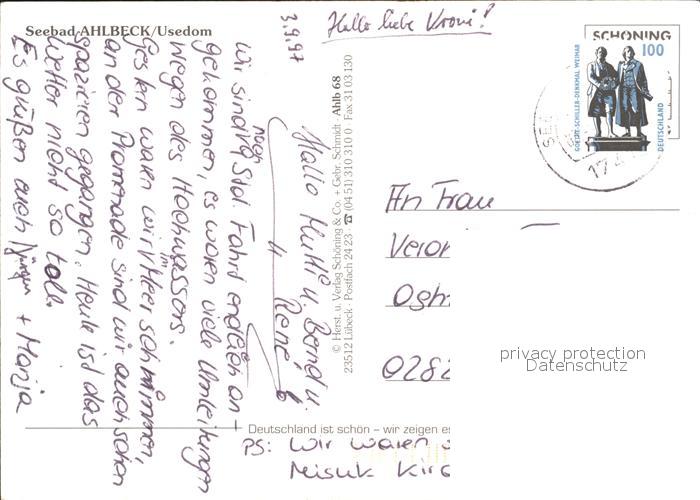 Seebad AHLBECK/Usedom
3.9.97
Hallo liebe Vroni!
SCHÖNING
100
GOETHE-SCHILLER-DENKMAL WEIMAR
DEUTSCHLAND
Hallo Mutti u. Bernd u.
René
Wir sind Std. Fahrt endlich an-
nach 4
gekommen, es waren viele Umleitungen
wegen des Hochwassers.
Gestern waren wir im Meer schwimmen,
an der Promenade sind wir auch schon
spazieren gegangen. Heute ist das
Wetter nicht so toll.
Es grüßen euch Jürgen + Manja
© Herst. u. Verlag Schöning & Co. + Gebr. Schmidt · Ahlb 68
23512 Lübeck · Postfach 24 23 ☎ (04 51) 310 310 0 Fax 31 03 130
An Frau
Veror
Ogh
0282
privacy protection
Datenschutz
Deutschland ist schön – wir zeigen es
PS: Wir waren
Kirc